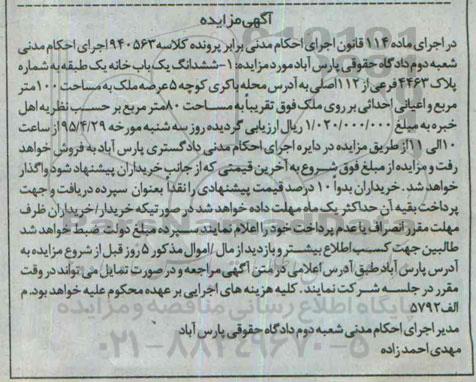 آگهی مزایده
در اجرای ماده ۱۱۴ قانون اجرای احکام مدنی برابر پرونده کلاسه ۹۴۰۵۶۳ اجرای احکام مدنی
شعبه دوم دادگاه حقوقی پارس آباد مورد مزایده: ۱-ششدانگ یک باب خانه یک طبقه به شماره
پلاک ۴۴۶۳ فرعی از ۱۱۲ اصلی به آدرس محله باکری کوچه ۵ عرصه ملک به مساحت ۱۰۰ متر
مربع و اعیانی احداثی بر روی ملک فوق تقریباً به مساحت ۸۰ متر مربع بر حسب نظریه اهل
خبره به مبلغ ۱/۰۲۰/۰۰۰/۰۰۰ ریال ارزیابی گردیده روز سه شنبه مورخه ۹۵/۴/۲۹ از ساعت
۱۰ الی ۱۱ از طریق مزایده در دایره اجرای احکام مدنی دادگستری پارس آباد به فروش خواهد
رفت و مزایده از مبلغ فوق شروع به آخرین قیمتی که از جانب خریداران پیشنهاد شود واگذار
خواهد شد. خریداران بدواً ۱۰ درصد قیمت پیشنهادی را نقداً بعنوان سپرده دریافت و جهت
پرداخت بقیه آن حداکثر یک ماه مهلت داده خواهد شد در صورتیکه خریدار/خریداران ظرف
مهلت مقرر انصراف یا عدم پرداخت خود را اعلام نمایند سپرده مبلغ دولت ضبط خواهد شد
طالبین جهت کسب اطلاع بیشتر و بازدید از مال/اموال مذکور ۵ روز قبل از شروع مزایده به
آدرس پارس آباد طبق آدرس اعلامی در متن آگهی مراجعه و در صورت تمایل می توانند در وقت
مقرر در جلسه شرکت نمایند. کلیه هزینه های اجرایی بر عهده محکوم علیه خواهد بود. م
الف ۵۷۹۲
مدیر اجرای احکام مدنی شعبه دوم دادگاه حقوقی پارس آباد
مهدی احمدزاده
پایگاه اطلاع رسانی مناقصه و مزایده
۰۲۱-۸۸۳۴۹۶۷۰-۵